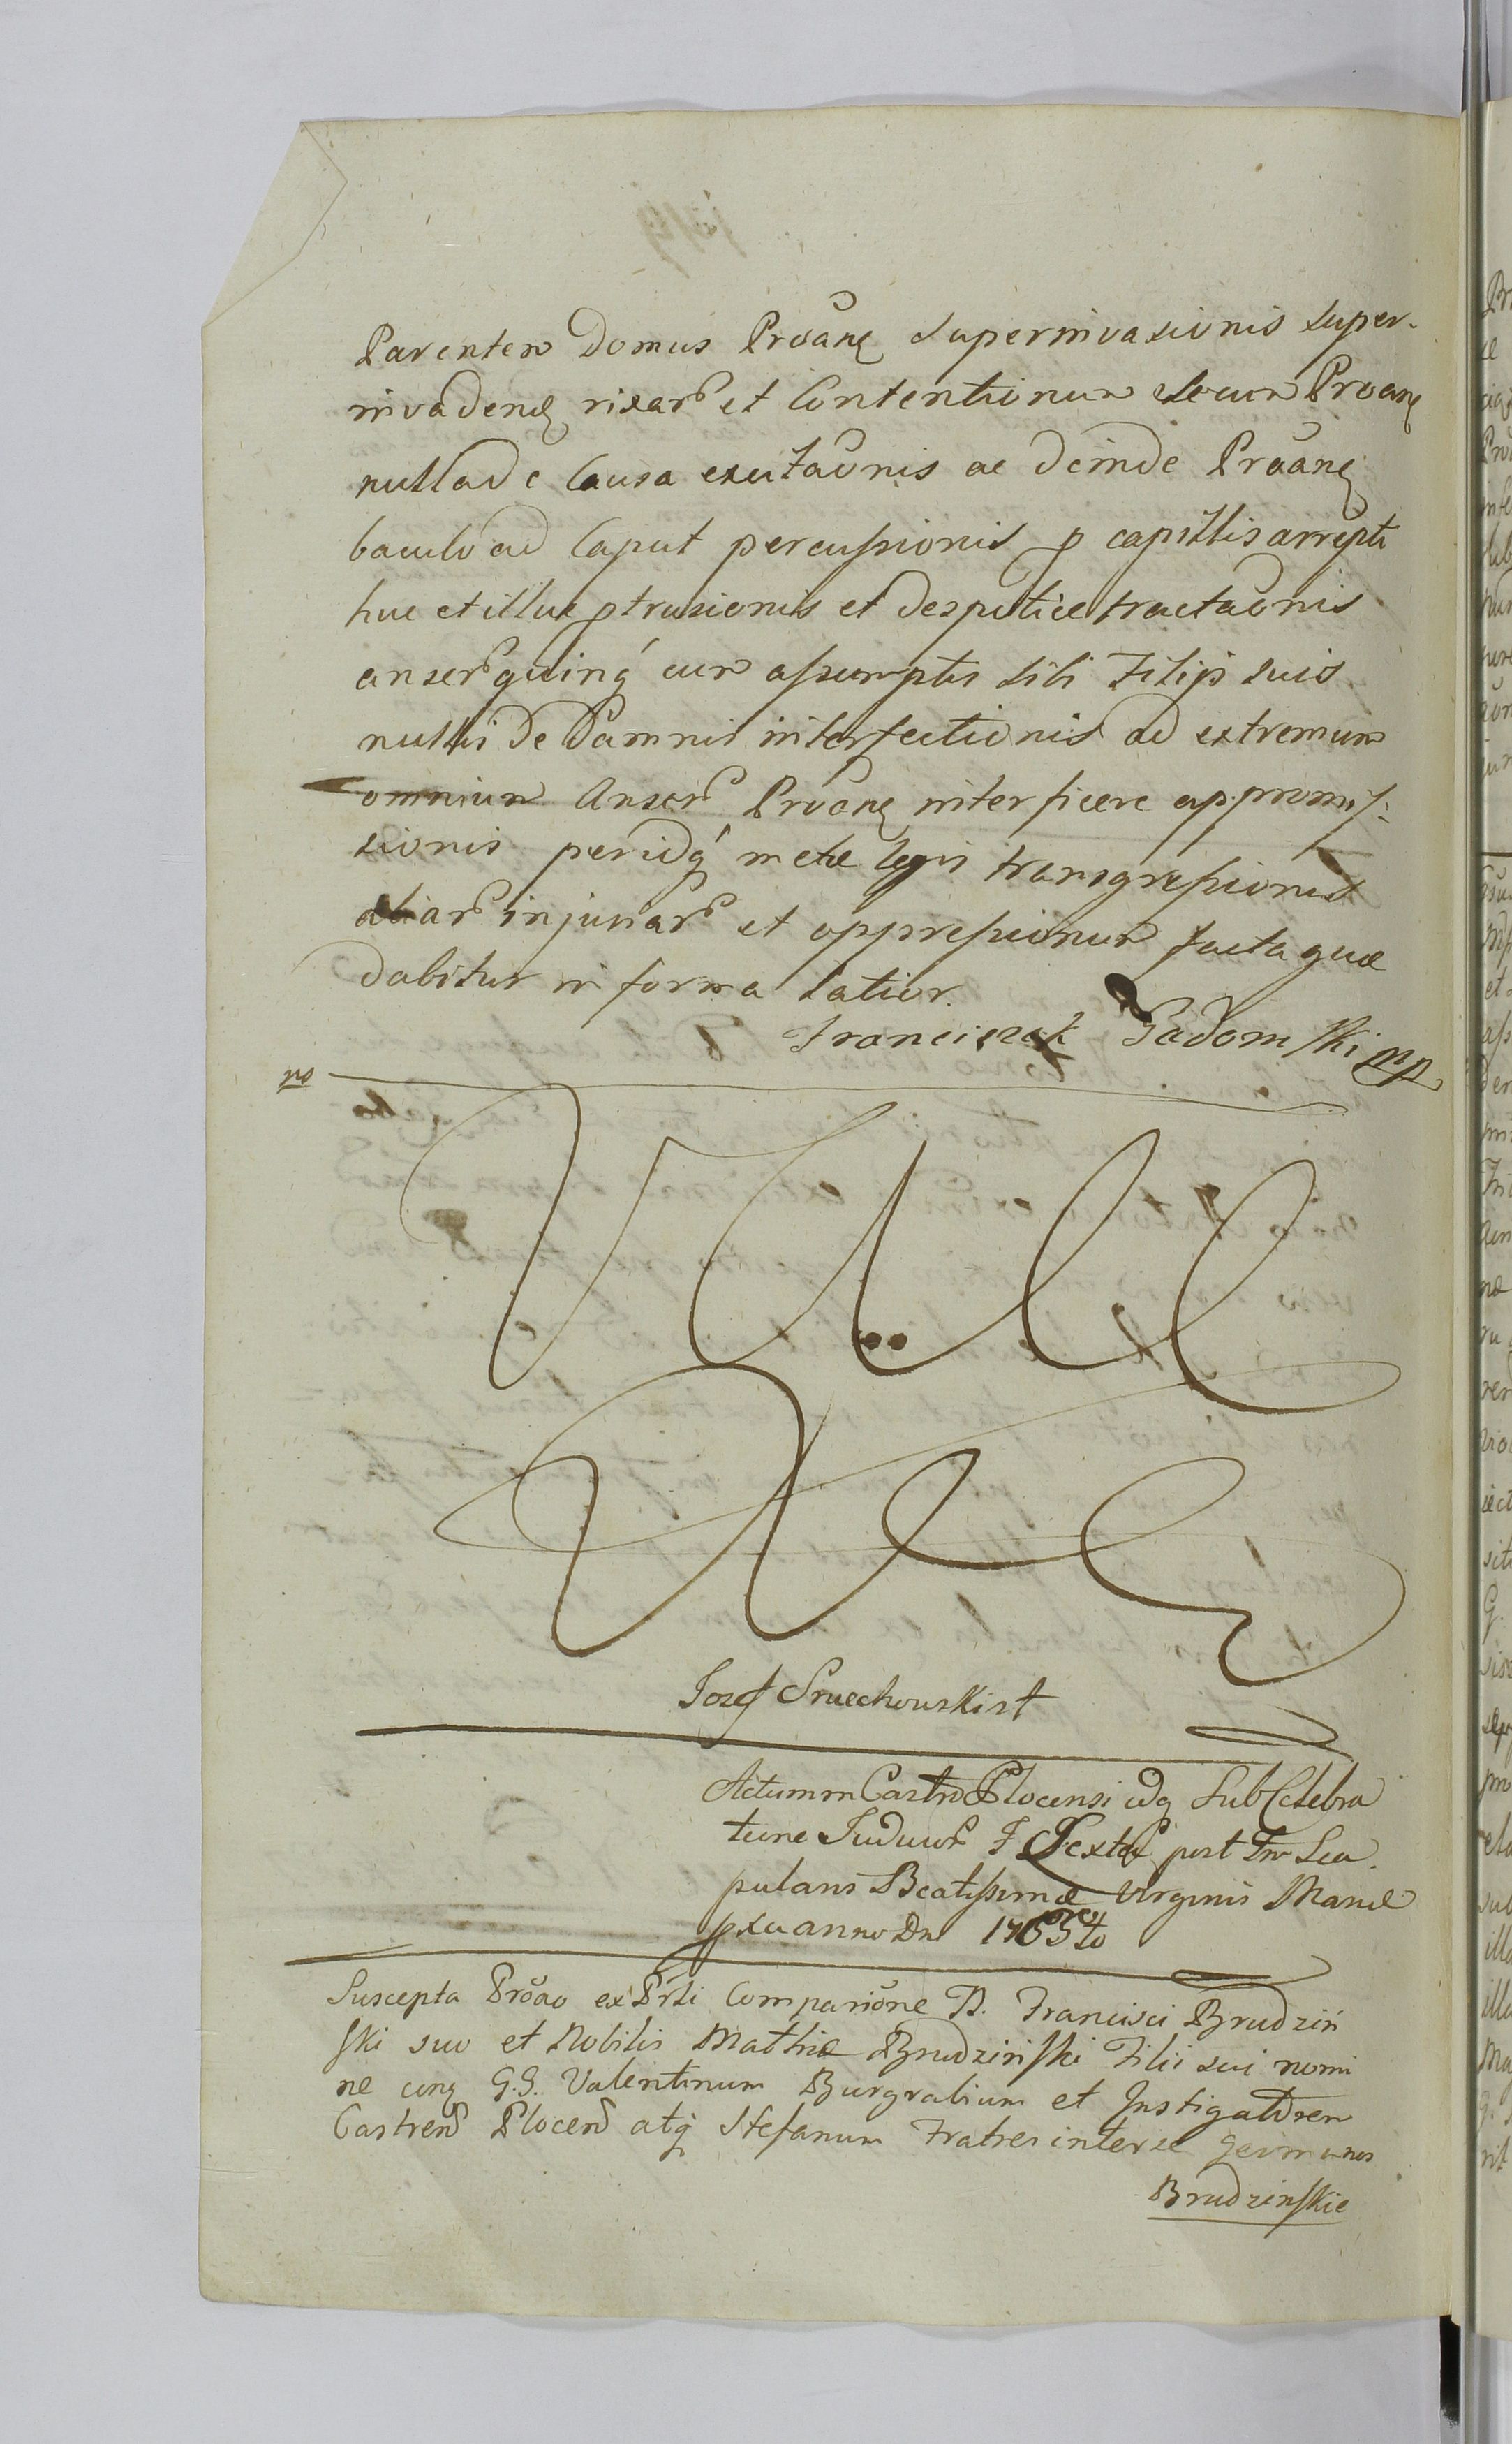 Parentem Domus Proãne superinvasionis super-
invadenđ rixarũ et Contentionum secum Proãne
nulla de Causa excitaõnis ac deinde Proãne
baculo ad Caput percussionis p capillis arrepti
huc et illuc ptrusionis et despotice tractaõnis
anserũ quinq́ cum assumptis sibi Filijs suis
nullis de Damnis interfectionis ad extremum
omnium Anserũ Proãne interficere appromis-
sionis periidq́ metæ legis transgressionis
aliarũ injuriarũ et oppressionum facta quæ
dabitur in forma latior.
Franciszek Gadomski mp
Jozef Smiechowski st
Actum in Castro Plocensi idq Sub Celebra
tione Judiciorũ F Sexta post Fm Sca
pularis Beatissimæ Virginis Mariæ
pxia anno Dni 1765to
Suscepta Proão ex Prti Compariõne N. Francisci Brudziń
ski suo et Nobilis Mathiæ Brudzinski Filii sui nomi
ne cong G.G. Valentinum Burgrabium et Instigatorem
Castrens Plocens atq́ Stefanum Fratres inter se Germanos
Brudzinskie